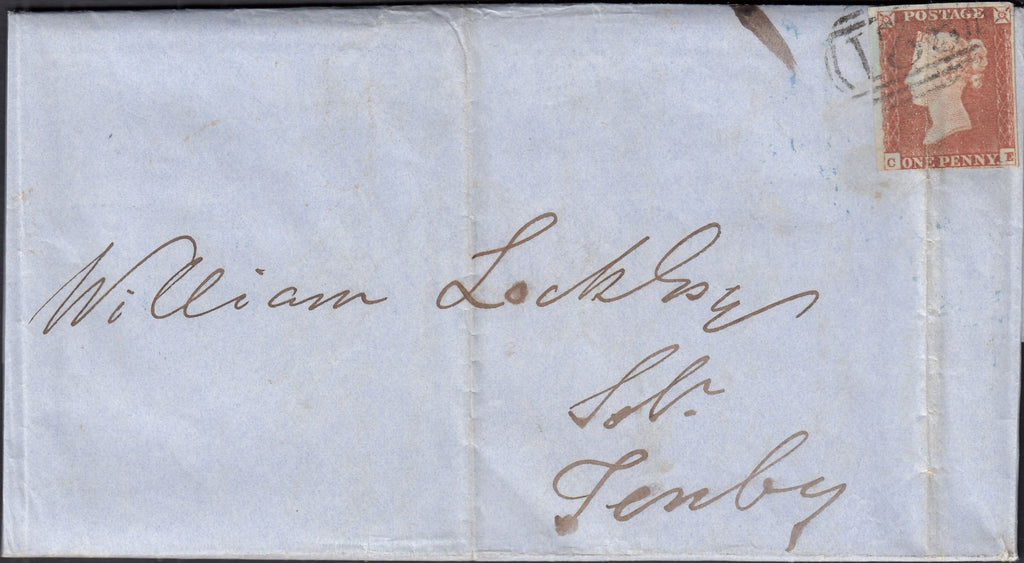 POSTAGE
C ONE PENNY. E
William Lock Esqr
Solr.
Tenby